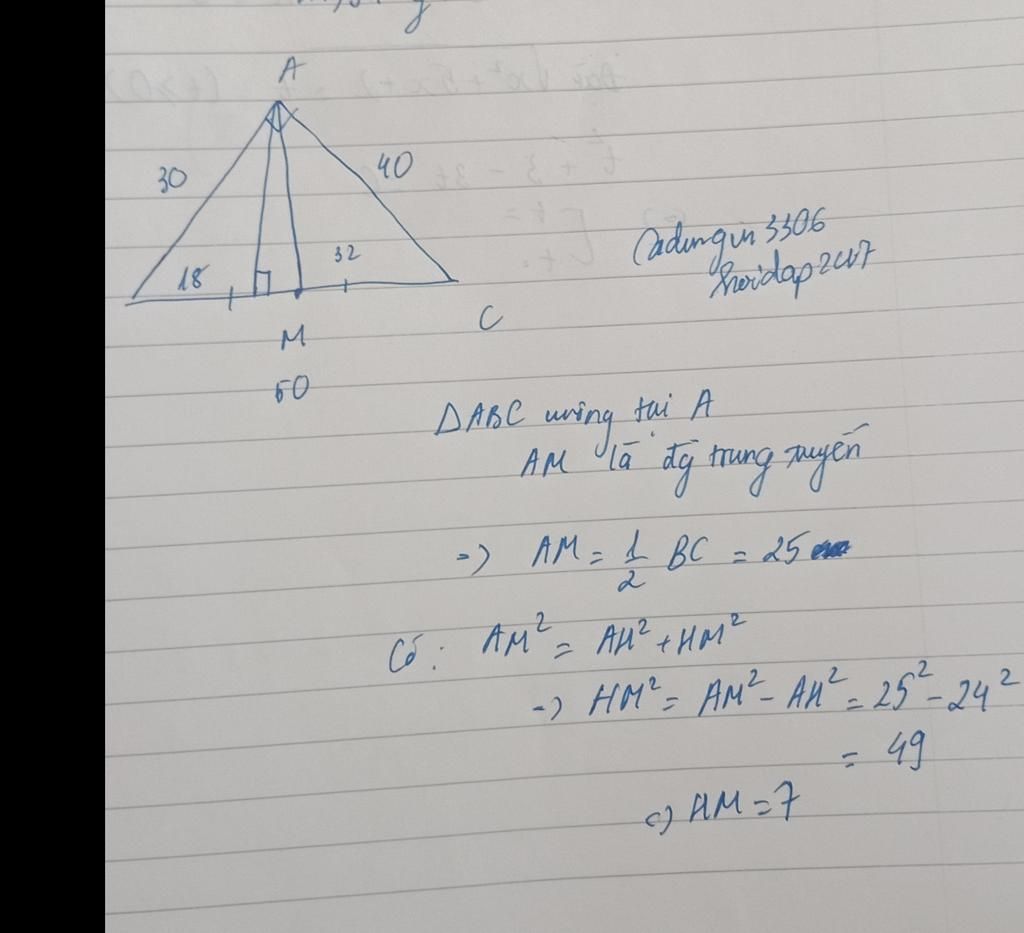 A
30
40
18
32
M
C
50
Odungvn3306
hoidap247
ΔABC vuông tại A
AM là đg trung tuyến
=> AM = 1/2 BC = 25
Có: AM² = AH² + HM²
=> HM² = AM² - AH² = 25² - 24²
= 49
=> HM = 7